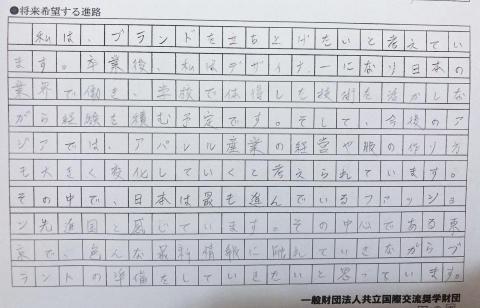 ●将来希望する進路
私は、ブランドを立ち上げたいと考えてい
ます。卒業後、私はデザイナーになり日本の
業界で働き、学校で体得した技術を活かしな
がら経験を積む予定です。そして、今後のア
ジアでは、アパレル産業の経営や服の作り方
も大きく変化していくと考えられています。
その中で、日本は最も進んでいるファッショ
ン先進国と感じています。その中心である東
京で、色んな最新情報に触れていきながらブ
ランドの準備をしていきたいと思っています。
一般財団法人共立国際交流奨学財団